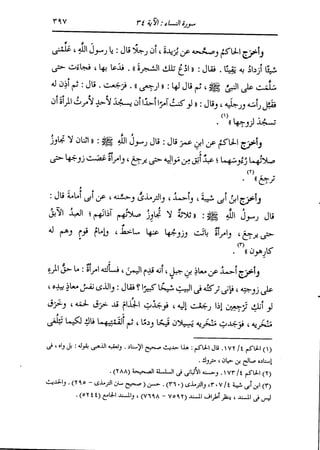 سورة النساء : الآية ٣٤
٣٩٧
وأخرج الحاكم وصححه عن بُرَيدة ، أن رجلًا قال : يا رسول الله ، علِّمْنى
شيئًا أزداد به يقينًا . فقال : « ادْعُ تلك الشجرةَ » . فدعا بها ، فجاءت حتى
سلَّمَت على النبىِّ ﷺ ، ثم قال لها : « ارجعى » . فرجَعت . قال : ثم أذِن له
فقبَّل رأسَه ورجليه ، وقال : « لو كنتُ آمرًا أحدًا أن يسجُدَ لأحدٍ لأمرتُ المرأةَ أن
تسجُدَ لزوجِها » (١) .
وأخرج الحاكم عن ابن عمرَ قال : قال رسول الله ﷺ : « اثنان لا تجاوِزُ
صلاتُهما رُءوسَهما ؛ عبدٌ أَبَق مِن مواليه حتى يرجِعَ ، وامرأةٌ عصَت زوجَها حتى
ترجِعَ » (٢) .
وأخرج ابن أبى شيبةَ ، وأحمدُ ، والترمذىُّ وحسَّنه ، عن أبى أُمامةَ قال :
قال رسول الله ﷺ : « ثلاثةٌ لا تُجاوِزُ صلاتُهم آذانَهم ؛ العبدُ الآبِقُ
حتى يرجِعَ ، وامرأةٌ باتَت وزوجُها عليها ساخطٌ ، وإمامُ قومٍ وهم له
كارهون » (٣) .
وأخرج أحمدُ عن معاذِ بنِ جبلٍ ، أنه قدِم اليمنَ ، فسأَلته امرأةٌ : ما حقُّ المرءِ
على زوجتِه ، فإنى تركتُه فى البيتِ شيخًا كبيرًا ؟ فقال : والذى نفسُ معاذٍ بيدِه ،
لو أنكِ ترجِعين إذا رجَعْتِ إليه ، فوجَدْتِ الجُذامَ قد خرَق لحمَه ، وخرَق
مَنخِرَيه ، فوجَدْتِ مَنخِرَيه يسيلان قَيْحًا ودمًا ، ثم ألقَمْتِيهما فاكِ لكيما تبلُغى
(١) الحاكم ١٧٢/٤. قال الحاكم : هذا حديث صحيح الإسناد . وتعقبه الذهبى بقوله : بل واه ، فى
إسناده صالح بن حيان ، متروك .
(٢) الحاكم ١٧٣/٤. وحسنه الألبانى فى السلسلة الصحيحة (٢٨٨) .
(٣) ابن أبى شيبة ٣٠٧/٤، والترمذى (٣٦٠) . حسن (صحيح سنن الترمذى - ٢٩٥) . والحديث
ليس فى المسند ، ينظر أطراف المسند (٧٥٩٢ - ٧٦٩٨) ، والمسند الجامع (٥٢٤٤) .